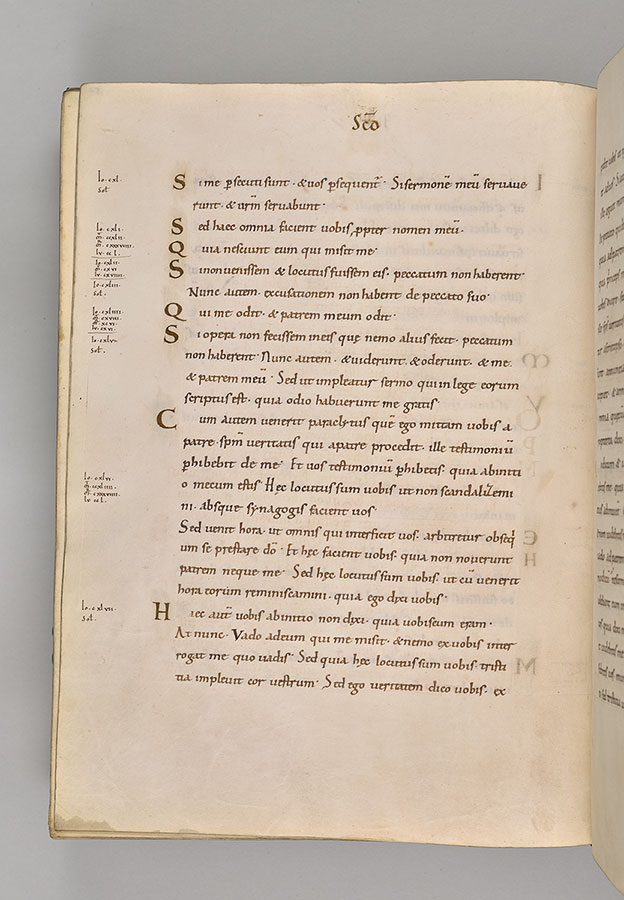 Scdo
Si me psecuti sunt · & vos psequent̄ · Si sermonē meū servave
runt · & vrm̄ servabunt ·
Sed haec omnia facient vobis, ppter nomen meū ·
Quia nesciunt eum qui misit me ·
Si non venissem & locutus fuissem eis · peccatum non haberent ·
Nunc autem · excusationem non habent de peccato suo ·
Qui me odit · & patrem meum odit ·
Si opera non fecissem in eis quę nemo alius fecit · peccatum
non haberent · Nunc autem · & viderunt · & oderunt · & me ·
& patrem meū · Sed ut impleatur sermo qui in lege eorum
scriptus est · quia odio habuerunt me gratis ·
Cum autem venerit paraclytus quē ego mittam vobis a
patre · spm̄ veritatis qui a patre procedit · ille testimoniū
phibebit de me · Et vos testimoniū phibetis · quia ab initi
o mecum estis · Hęc locutus sum vobis ut non scandalizemi
ni · absque synagogis facient vos ·
Sed venit hora · ut omnis qui interficit vos · arbitretur obseq̄
um se prestare dō · Et hęc facient vobis · quia non noverunt
patrem neque me · Sed hęc locutus sum vobis · ut cū venerit
hora eorum reminiscamini · quia ego dixi vobis ·
Haec autē vobis ab initio non dixi · quia vobiscum eram ·
At nunc · Vado ad eum qui me misit · & nemo ex vobis inter
rogat me quo vadis · Sed quia hęc locutus sum vobis tristi
tia implevit cor vestrum · Sed ego veritatem dico vobis · ex